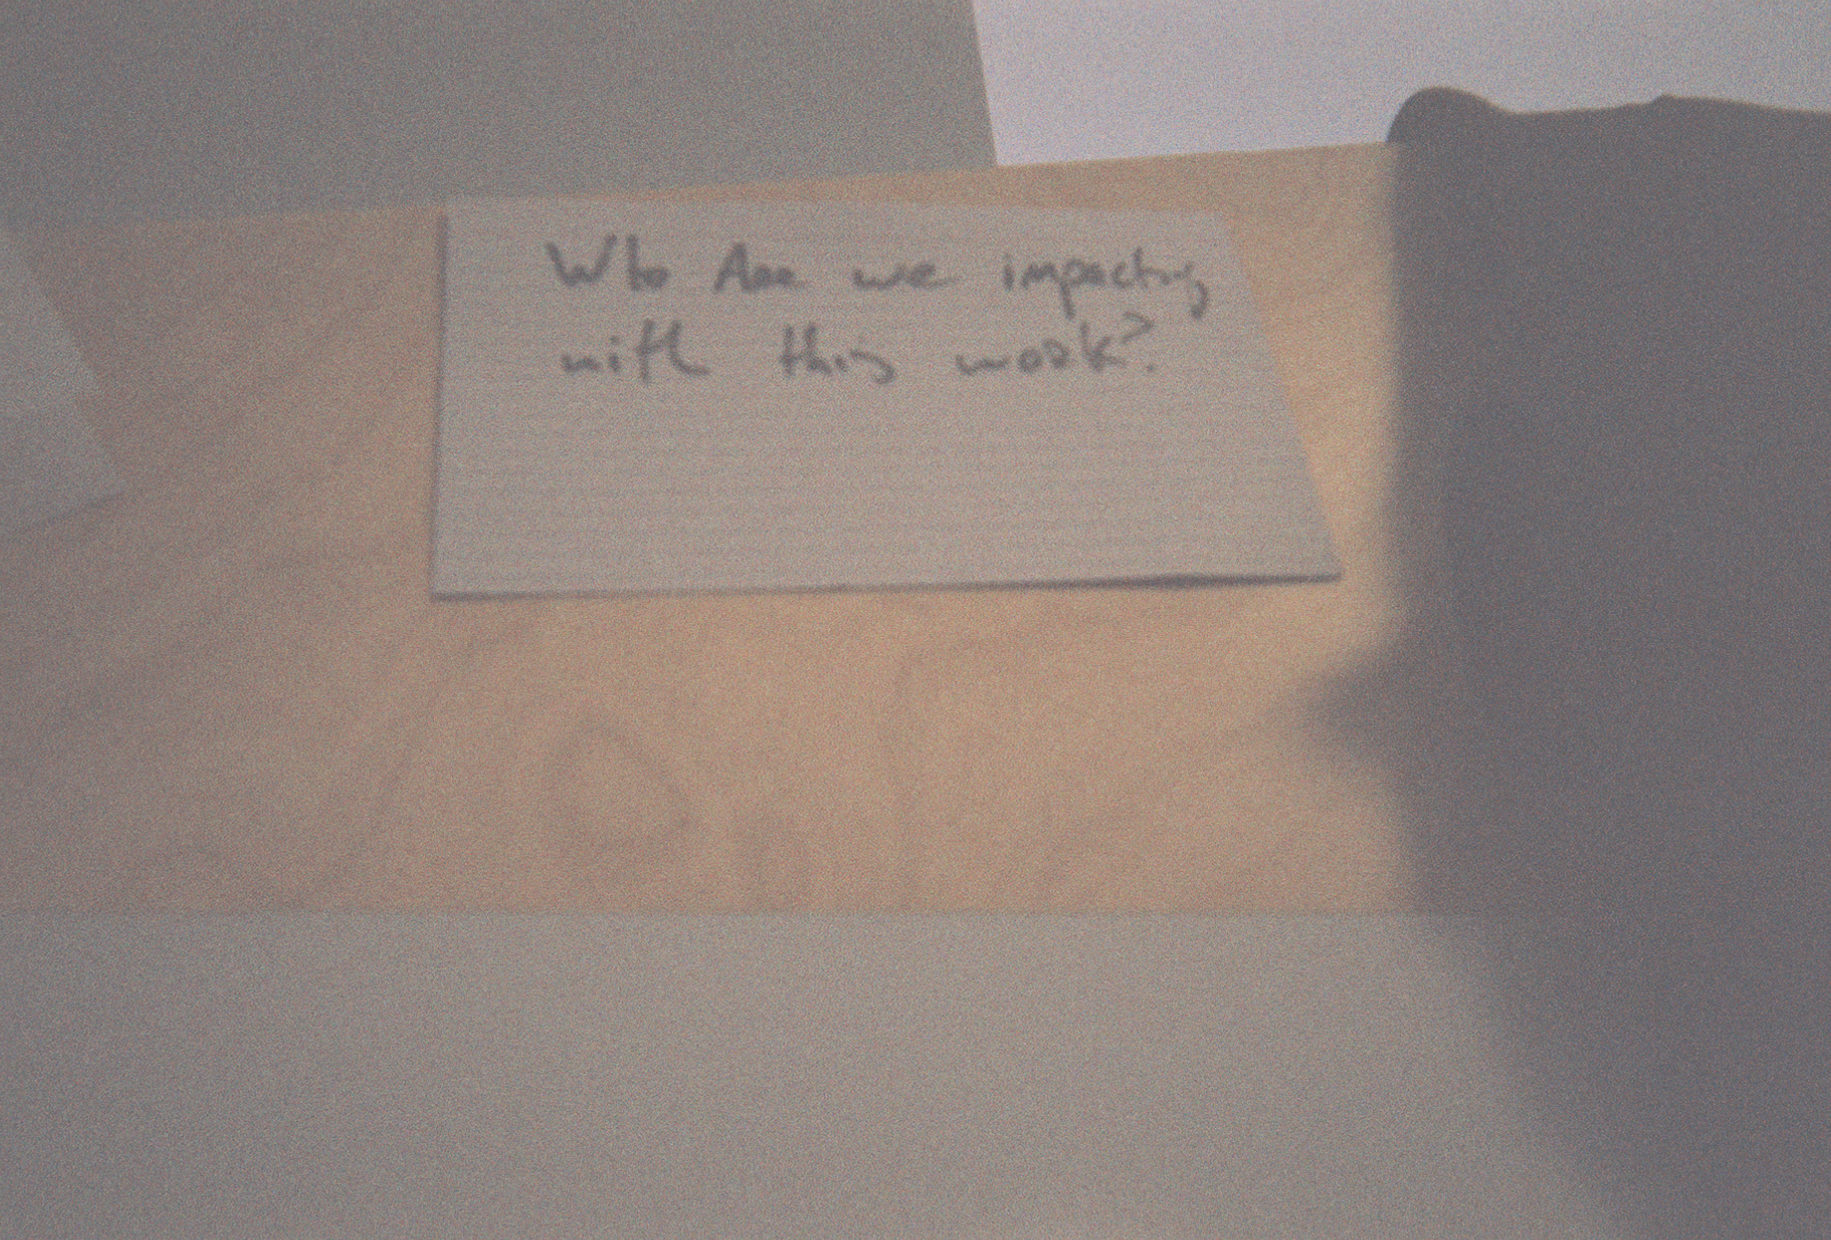 Who Are we impacting
with this work?